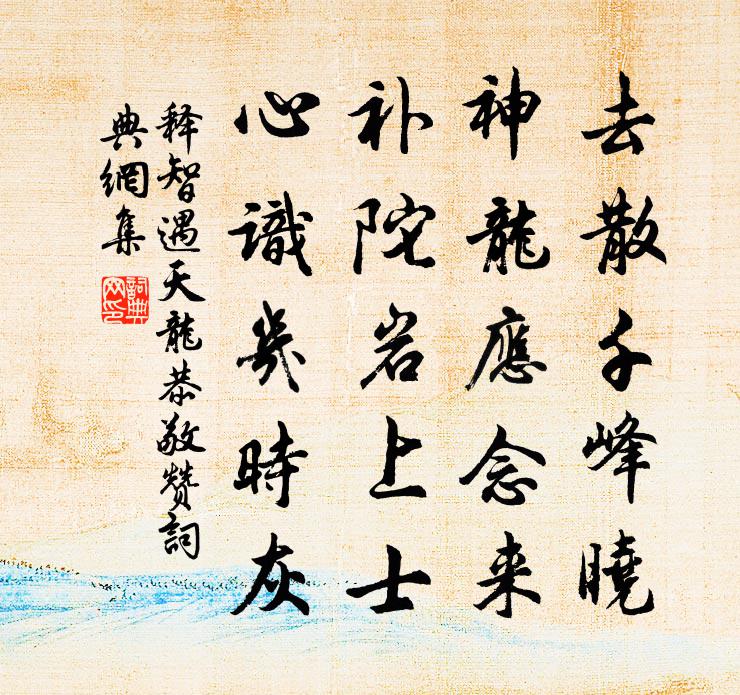 去散千峰曉
神龍應念来
补陀岩上士
心識幾時灰
释智遇天龍恭敬赞詞
典網集
詞典
网印